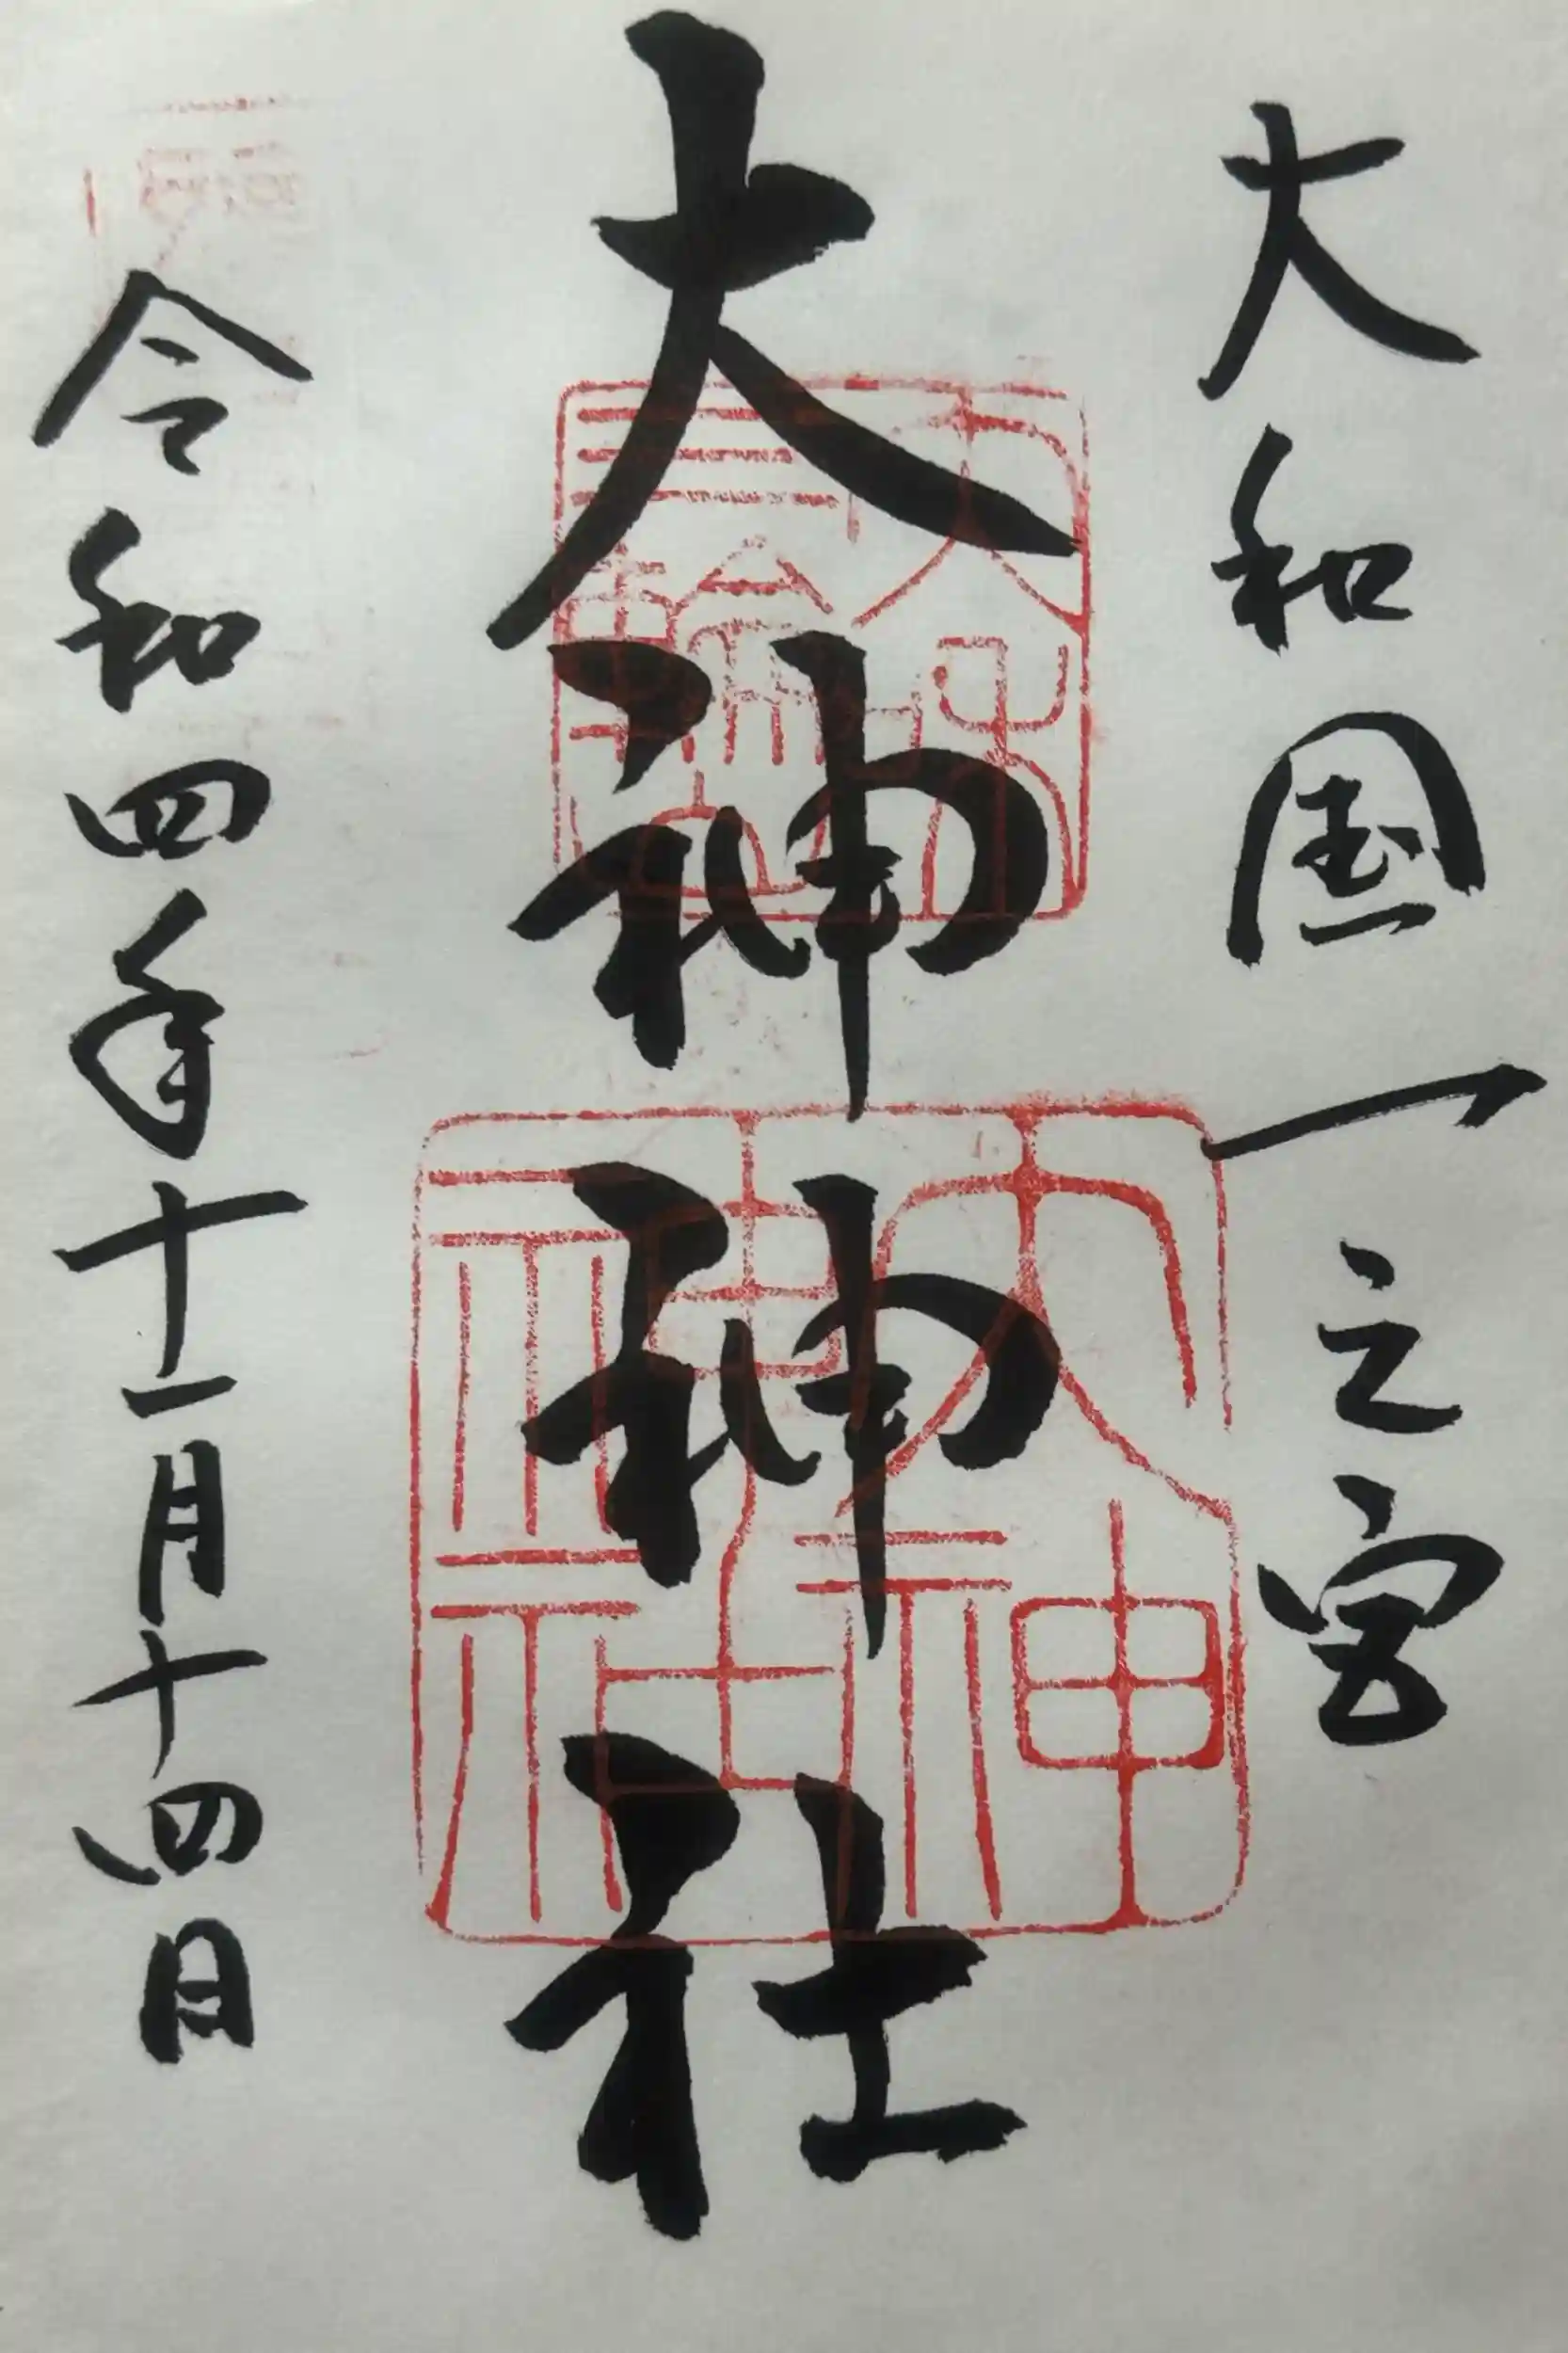 大和国一之宮
大神神社
令和四年十一月十四日
大神神社